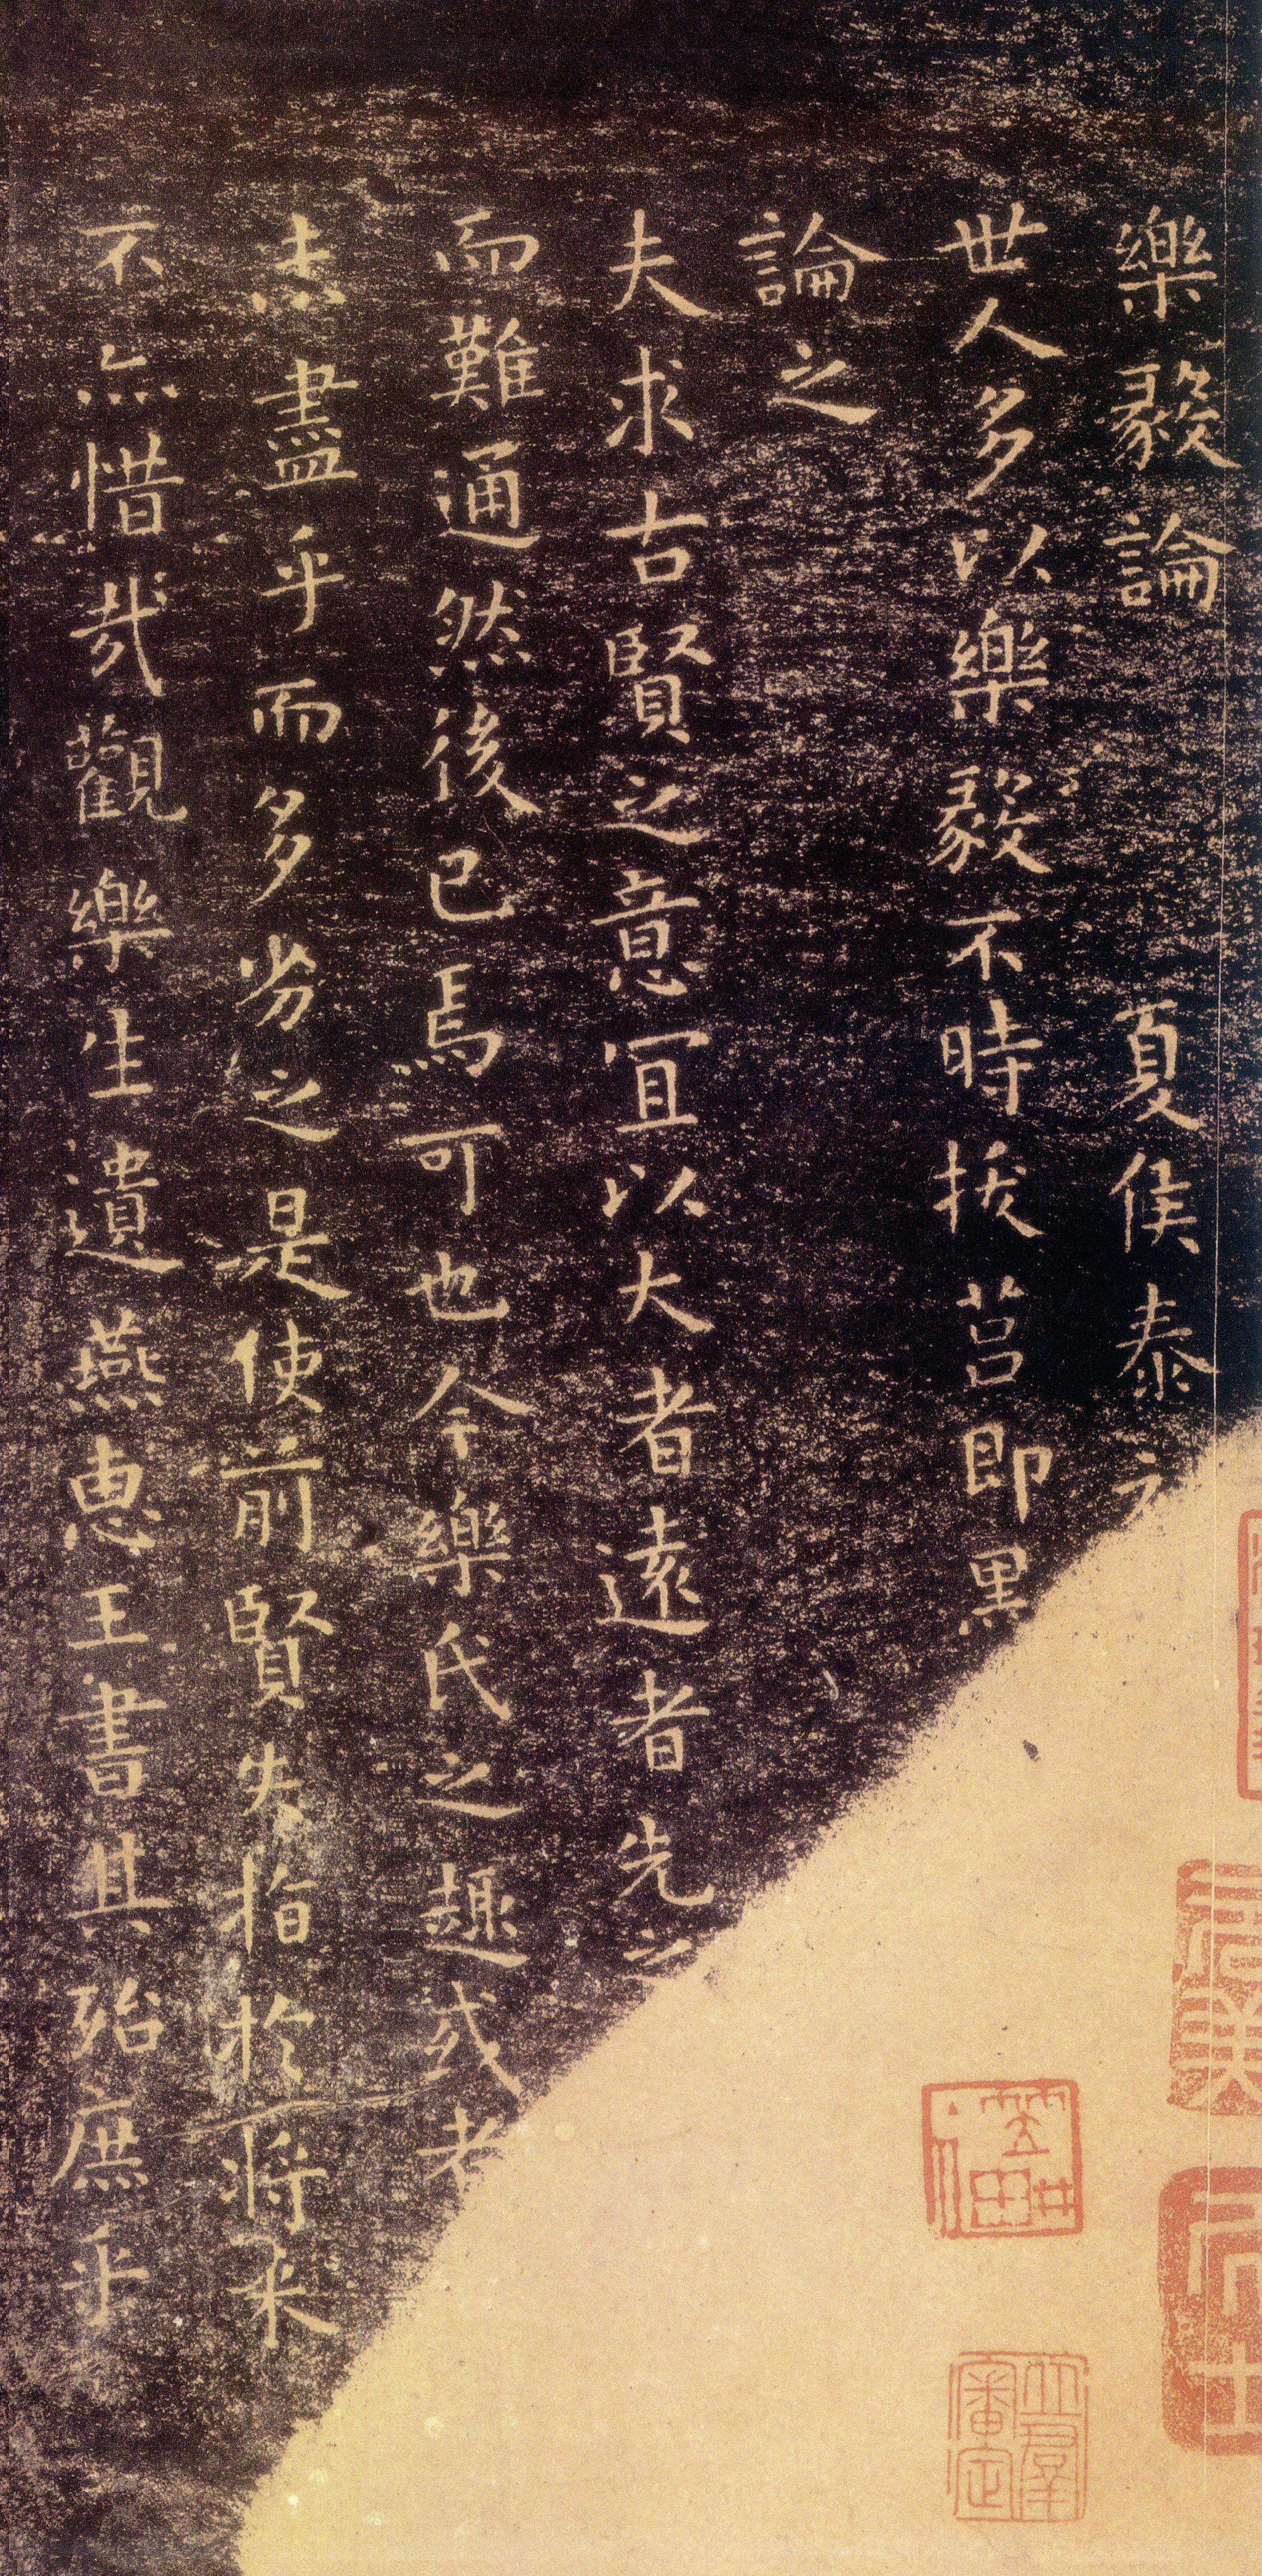 樂毅論　夏侯泰
世人多以樂毅不時拔莒即黑
論之
夫求古賢之意宜以大者遠者先之
而難通然後已焉可也今樂氏之趣或者
未盡乎而多劣之是使前賢失指於將来
不亦惜哉觀樂生遺燕惠王書其殆庶乎